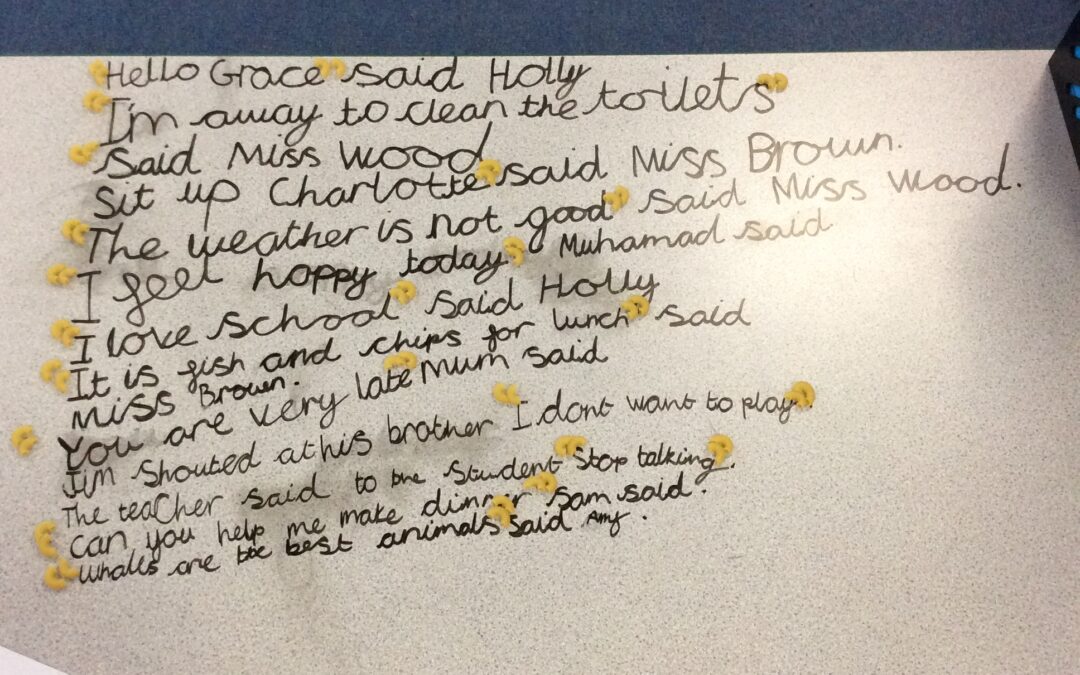 "Hello Grace" said Holly
"I'm away to clean the toilets"
said Miss Wood
"Sit up Charlotte" said Miss Brown.
"The weather is not good" said Miss Wood.
"I feel happy today" Muhamad said
"I love school" said Holly
"It is fish and chips for lunch" said
Miss Brown.
"You are very late" Mum said
Jim shouted at his brother "I dont want to play".
The teacher said to the student "Stop talking".
"Can you help me make dinner" Sam said.
"Whales are the best animals" said Amy.